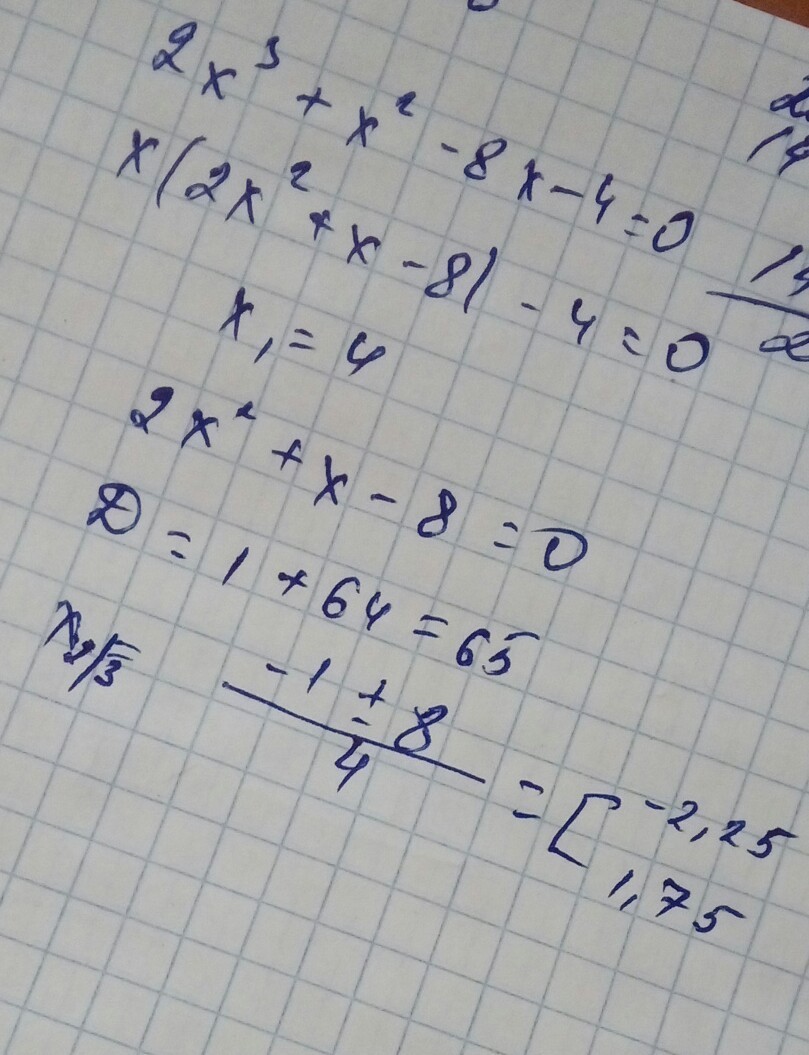 2x³ + x² - 8x - 4 = 0
x(2x² + x - 8) - 4 = 0
x₁ = 4
2x² + x - 8 = 0
D = 1 + 64 = 65
x₂/₃ (-1 ± 8)/4 = [ -2,25
1,75